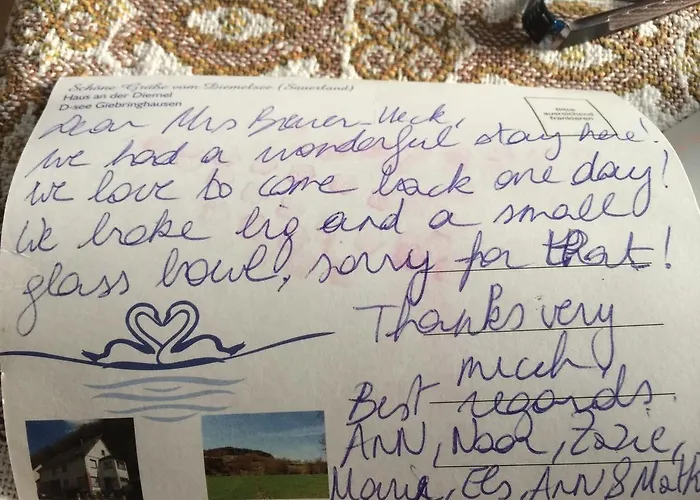 Schöne Grüße vom Diemelsee (Sauerland)
Haus an der Diemel
D-see Giebringhausen
Bitte
ausreichend
frankieren
Dear Mrs Brever-Heck,
We had a wonderful stay here!
We love to come back one day!
We broke big and a small
glass bowl, sorry for that!
Thanks very
much,
Best regards
ANN, Noor, Zazie,
Marie, Els, ANN &